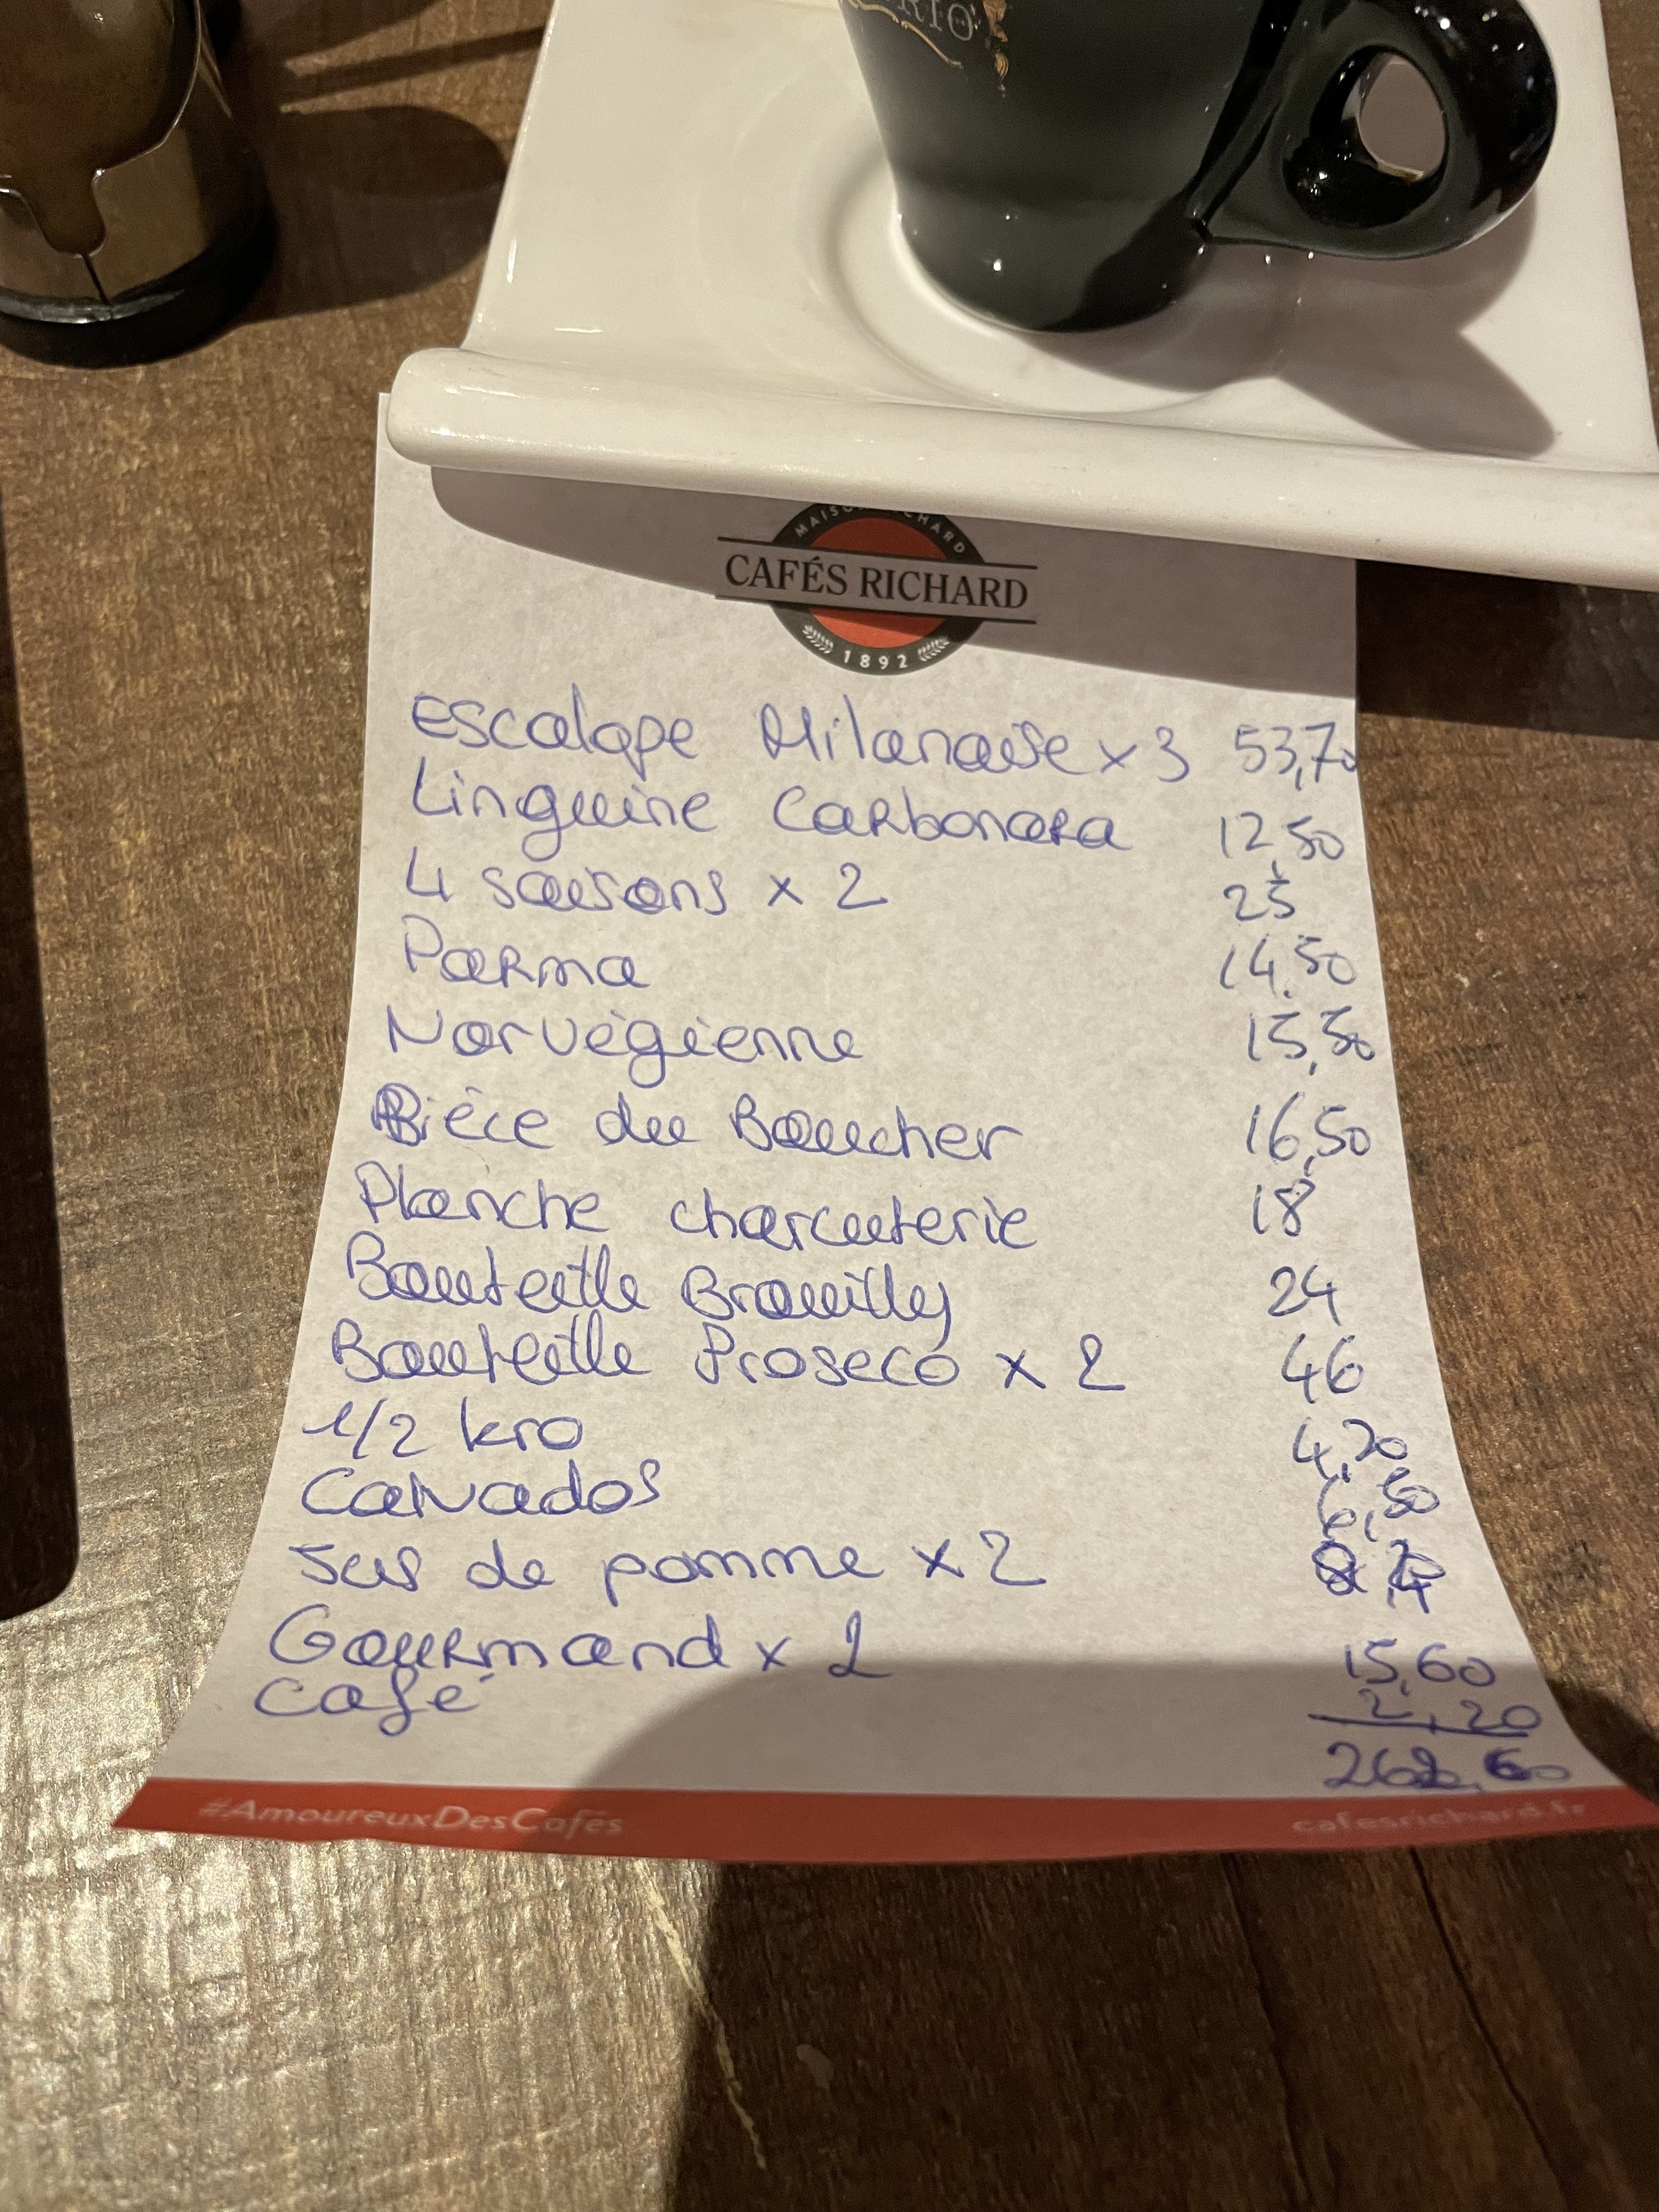 RIO
MAISON RICHARD
CAFÉS RICHARD
1892
Escalope Milanaise x 3 53,70
Linguine Carbonara 12,50
4 saisons x 2 25
Parma 14,50
Norvégienne 15,50
Pièce du Boucher 16,50
Planche charcuterie 18
Bouteille Brouilly 24
Bouteille Proseco x 2 46
1/2 kro 4,20
Calvados 6,50
Jus de pomme x 2
Gourmand x 2 15,60
Café 2,20
262,60
#AmoureuxDesCafés cafesrichard.fr